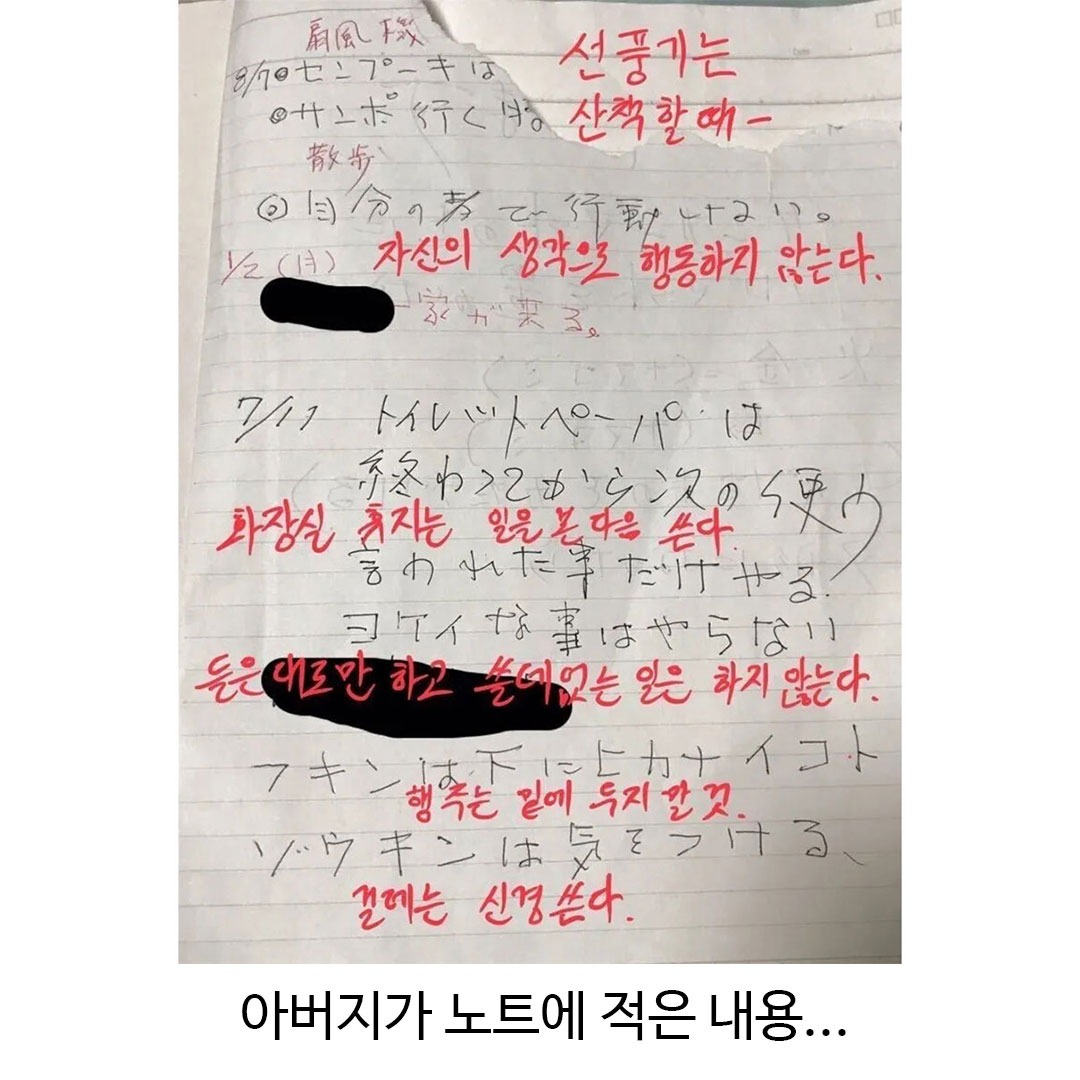 扇風機
8/7◎センプーキは
선풍기는
◎サンポ行く時。
산책할 때-
散歩
◎自分の考で行動しない。
자신의 생각으로 행동하지 않는다.
1/2(月)
一家が来る。
7/17 トイレットペーパーは
終わってから次の使う
화장실 휴지는 일을 본 다음 쓴다.
言われた事だけやる.
ヨケイな事はやらない
듣은 대로만 하고 쓸데없는 일은 하지 않는다.
フキンは下にヒカナイコト
행주는 밑에 두지 말 것.
ゾウキンは気をつける、
걸레는 신경쓴다.
아버지가 노트에 적은 내용...